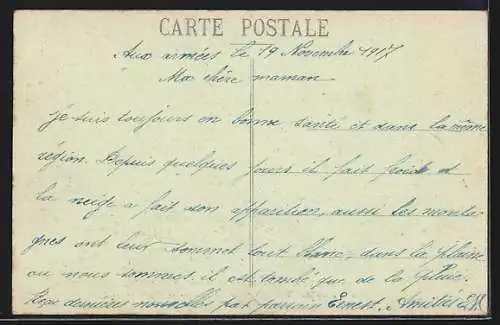 CARTE POSTALE
Aux armées le 19 Novembre 1917
Ma chère maman
je suis toujours en bonne santé et dans la même
région. Depuis quelques jours il fait froid et
la neige a fait son apparition, aussi les monta-
gnes ont leur sommet tout blanc, dans la plaine
ou nous sommes. il est tombé que de la pluie.
dernières nouvelles par parrain Ernest. Amitiés